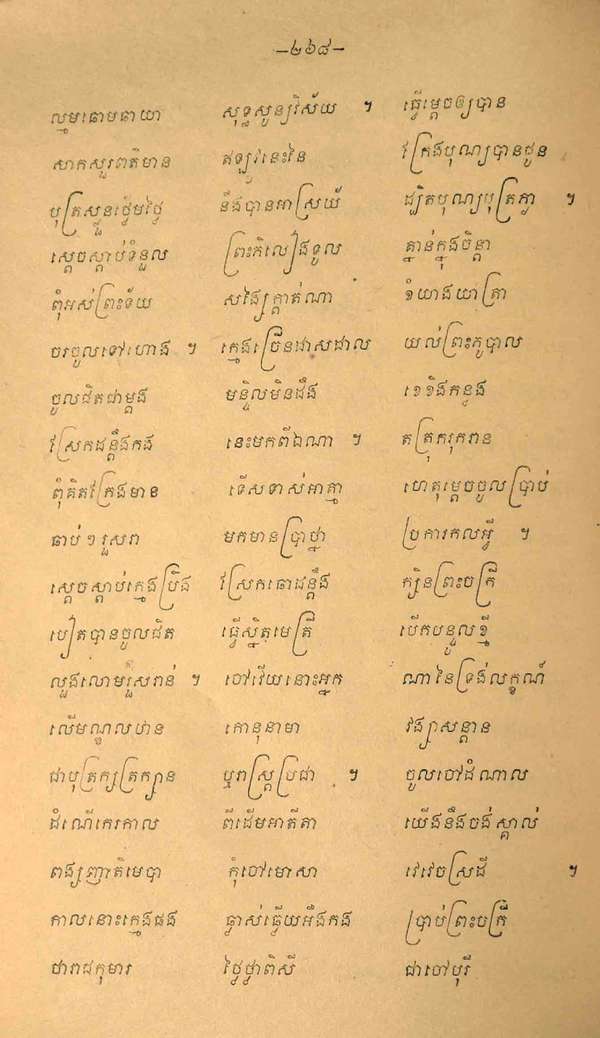 –២៦៨–
ល្មមឆោមឆាយា សុទ្ធសូន្យវិស័យ ។ ធ្វើម្ដេចឲ្យបាន
សាកសួរពត៌មាន ឥឡូវនេះនៃ ក្រែងបុណ្យបានជូន
បុត្រស្ងួនថ្លើមថ្លៃ នឹងបានអាស្រ័យ ដ្បិតបុណ្យបុត្រភ្ងា ។
ស្ដេចស្ដាប់ទំនួល ព្រះភិលៀងទូល គ្នាន់ក្នុងចិន្ដា
ពុំអស់ព្រះទ័យ សង្ស័យក្ដាត់ណា ខំយាងយាត្រា
ចរចូលទៅហោង ។ ក្មេងច្រើនដាសដាល យល់ព្រះភូបាល
ចូលជិតជាម្ដង មន្ទិលមិនដឹង ខេខិងកន្ទង
ស្រែកដន្ដឹងកង នេះមកពីឯណា ។ តត្រុករុករាន
ពុំគិតក្រែងមាន ទើសទាស់អាត្មា ហេតុម្ដេចចូលប្រាប់
ឆាប់ៗរួសរា មកមានប្រាថ្នា ប្រការកលអ្វី ។
ស្ដេចស្ដាប់ក្មេងប្រឹង ស្រែកឆោដន្ដឹង ក្សិនព្រះចក្រី
បៀតបានចូលជិត ធ្វើស្និតមេត្រី បើកបន្ទូលខ្មី
លួងលោមរួសរាន់ ។ ចៅវើយនោះអ្នក ណានៃទ្រង់លក្ខណ៍
លើមណ្ឌលឋាន កោនុនាមា វង្សាសន្ដាន
ជាបុត្រក្សត្រក្សាន ឬរាស្ត្រប្រជា ។ ចូលចៅដំណាល
ដំណើកេរកាល ពីដើមអាតីតា យើងនឹងចង់ស្គាល់
ពង្សញាតិមេបា កុំចៅមោសា វេវេចស្រដី ។
កាលនោះក្មេងផង ធ្វាស់ធ្វើយអឹងកង ប្រាប់ព្រះចក្រី
ថារាជកុមារ ថ្លៃថ្លាពិសី ជាចៅបុរី